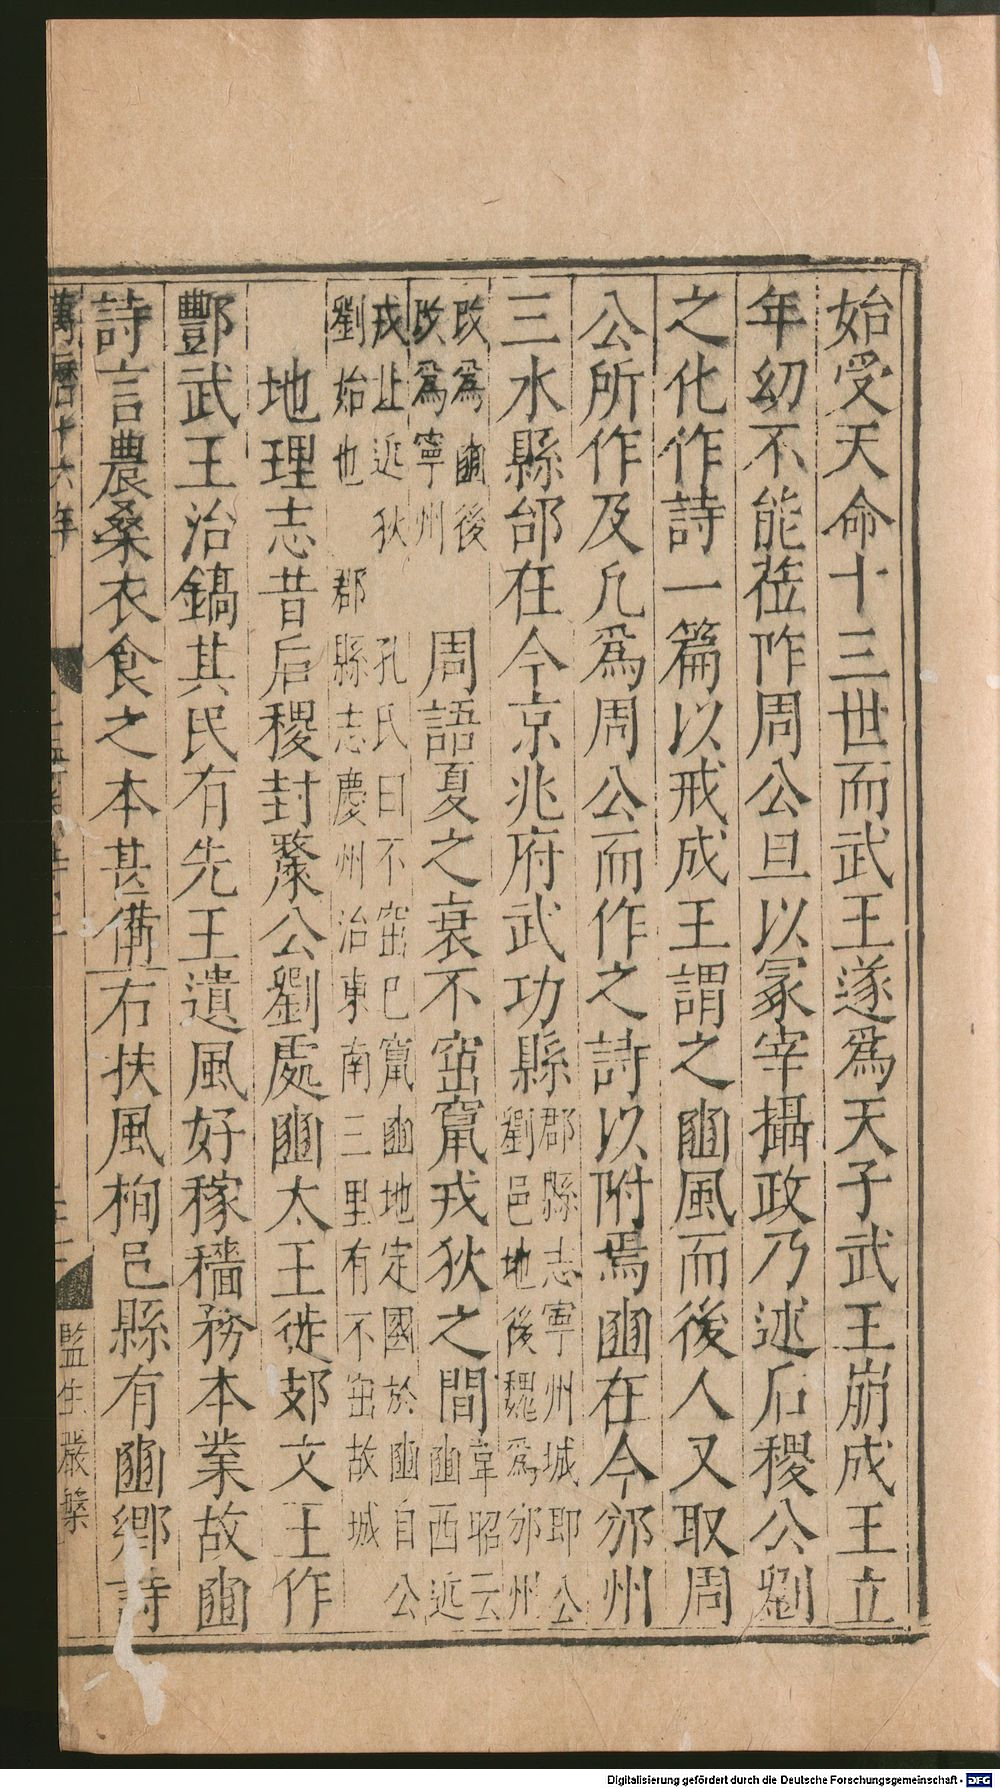 始受天命十三世而武王遂爲天子武王崩成王立
年幼不能莅阼周公旦以冢宰攝政乃述后稷公劉
之化作詩一篇以戒成王謂之豳風而後人又取周
公所作及凡爲周公而作之詩以附焉豳在今邠州
三水縣邰在今京兆府武功縣郡縣志寧州城即公
劉邑地後魏爲邠州
改爲豳後
改爲寧州
周語夏之衰不窋竄戎狄之間韋昭云
豳西近
戎北近狄
孔氏曰不窋已竄豳地定國於豳自公
劉始也
郡縣志慶州治東南三里有不窋故城
地理志昔后稷封斄公劉處豳太王徙郊文王作
酆武王治鎬其民有先王遺風好稼穡務本業故豳
詩言農桑衣食之本甚備右扶風栒邑縣有豳鄉詩
萬曆十六年
監生嚴槃
Digitalisierung gefördert durch die Deutsche Forschungsgemeinschaft - DFG